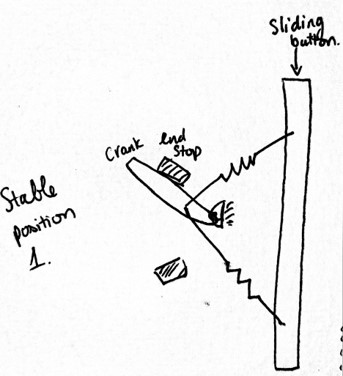 Sliding
button.
Crank
end
Stop
Stable
position
1.